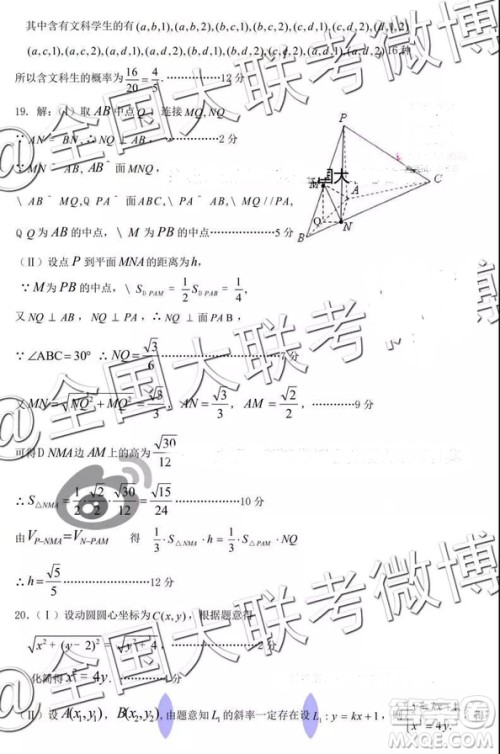 其中含有文科学生的有(a,b,1),(a,b,2),(b,c,1),(b,c,2),(c,d,1),(c,d,2),(d,1,2)
(a,c,1),(a,c,2),(a,d,1),(a,d,2),(b,d,1),(b,d,2),(a,1,2),(b,1,2),(a,d,2)16种
所以含文科生的概率为16/20=4/5. ………………12分
19. 解:(Ⅰ)取AB中点Q 连接MQ,NQ
∵ AN = BN,∴NQ⊥AB, ……………2分
∵ MN^ AB,AB^ 面MNQ,
\ AB^ MQ,Q PA^ 面ABC,\ PA^ AB,\ MQ//PA,
Q Q为AB的中点,\ M为PB的中点……………5分
P
C
A
Q
N
B
(Ⅱ)设点P到平面MNA的距离为h,
∵M为PB的中点,\ S_{D PAM} = 1/2 S_{D PAB} = 1/4,
又NQ⊥AB,NQ⊥PA,∴NQ⊥面PAB,
∵∠ABC=30° ∴NQ=√3/6 ………………7分
又MN=√(NQ²+MQ²)=√3/3,AN=√3/3,AM=√2/2,…………9分
可得D NMA边AM上的高为√30/12
∴S_{△NMA}=1/2·√2/2·√30/12=√15/24 ……………10分
由V_{P-NMA}=V_{N-PAM} 得 1/3·S_{△NMA}·h=1/3·S_{△PAM}·NQ
∴h=√5/5 ……………12分
20.(Ⅰ)设动圆圆心坐标为C(x,y),根据题意得
√(x²+(y-2)²)=√(y²+4),
化简得x²=4y. …………4分
(Ⅱ)设A(x₁,y₁),B(x₂,y₂),由题意知L₁的斜率一定存在设L₁:y=kx+1,
@全国大联考微博
@全国大联考微博
@全国大联考微博
答案圈
MXQE.COM